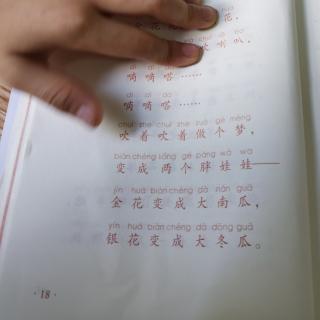 金花 花,
chuī lǎ ba
吹喇叭,
dī dī dā
嘀嘀嗒……
dī dī dā
嘀嘀嗒……
chuī zhe chuī zhe zuò gè mèng
吹着吹着做个梦,
biàn chéng liǎng gè pàng wá wa
变成两个胖娃娃——
jīn huā biàn chéng dà nán guā
金花变成大南瓜,
yín huā biàn chéng dà dōng guā
银花变成大冬瓜。
·18·